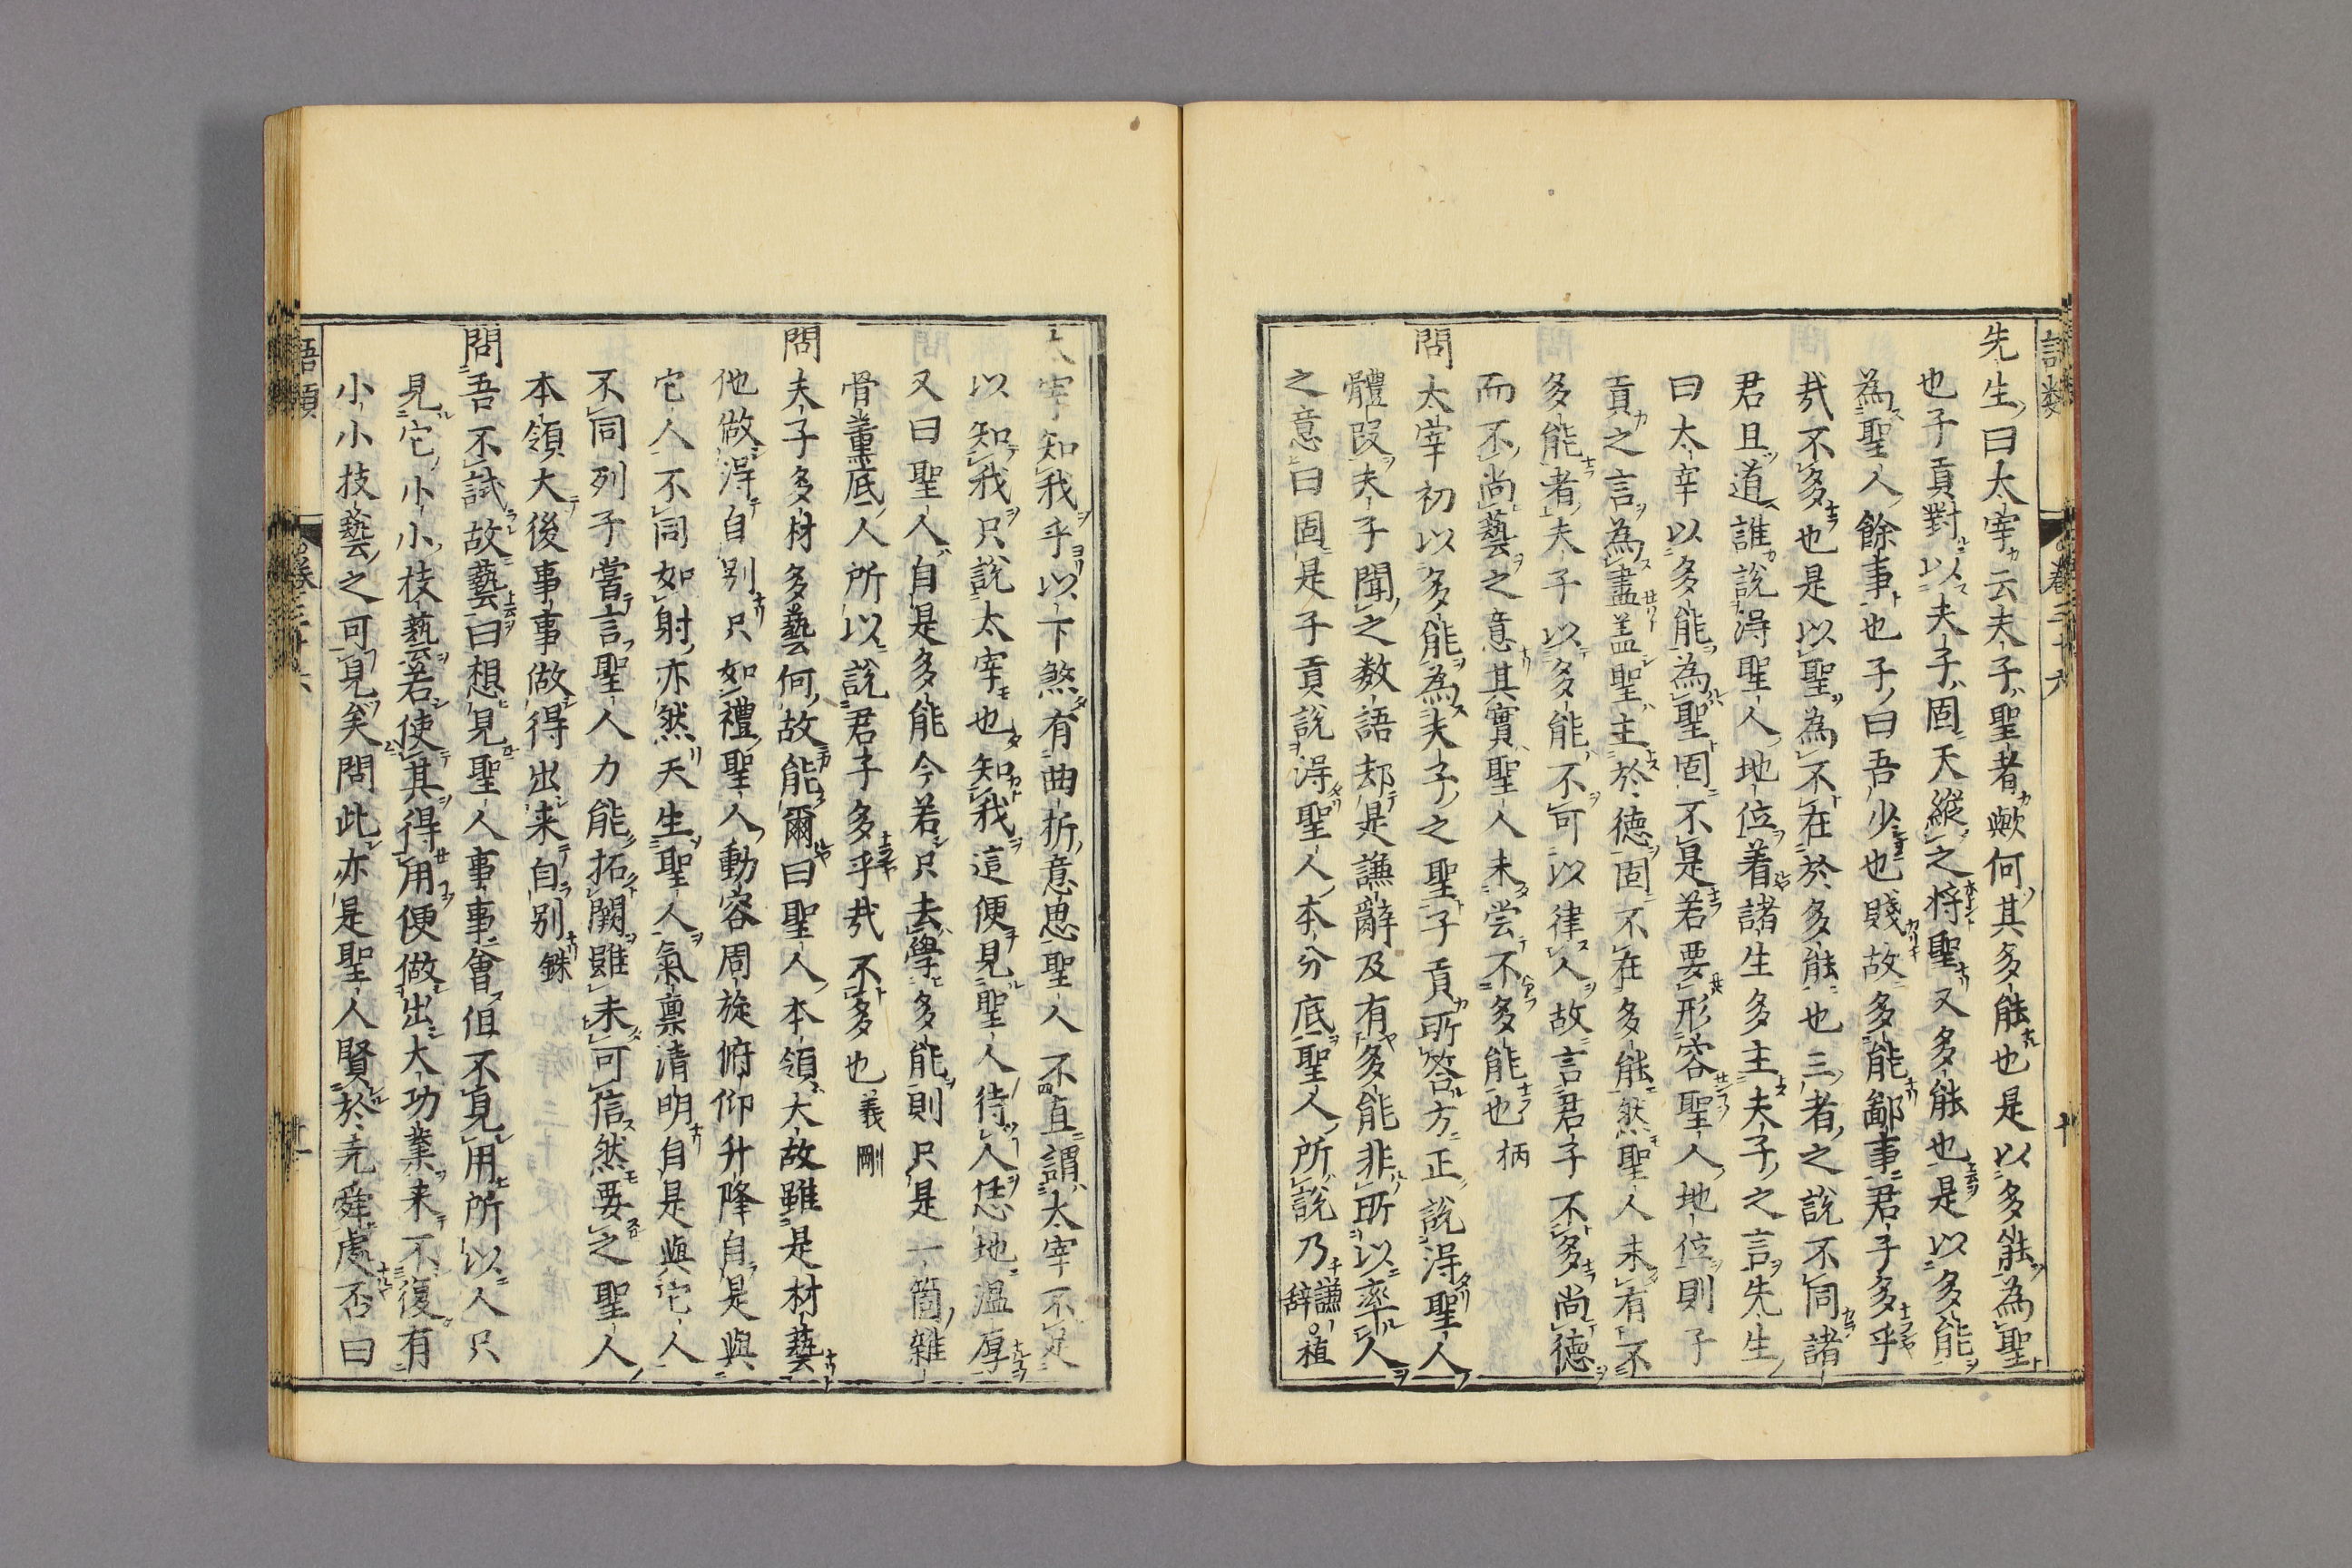 語類
卷三十六
十
先生曰太宰云夫子聖者歟何其多能也是以多能為聖
也子貢對以夫子固天縱之將聖又多能也是以多能
為聖人餘事也子曰吾少也賤故多能鄙事君子多乎
㢤不多也是以聖為不在於多能也三者之說不同諸
君且道誰說淂聖人地位着諸生多主夫子之言先生
曰太宰以多能為聖固不是若要形容聖人地位則子
貢之言為盡盖聖主於德固不在多能然聖人未有不
多能者夫子以多能不可以律人故言君子不多尚德
而不尚藝之意其實聖人未嘗不多能也柄
問太宰初以多能為夫子之聖子貢所答方正說淂聖人
體段夫子聞之数語却是謙辭及有多能非所以率人
之意曰固是子貢說淂聖人本分底聖人所說乃謙辞○植
太宰知我乎以下煞有曲折意思聖人不直謂太宰不足
以知我只說太宰也知我這便見聖人待人恁地温厚
又曰聖人自是多能今若只去學多能則只是一箇雜
骨董底人所以說君子多乎㢤不多也義剛
問夫子多材多藝何故能爾曰聖人本領大故雖是材藝
他做淂自别只如禮聖人動容周旋俯仰升降自是與
它人不同如射亦然天生聖人氣禀清明自是與它人
不同列子嘗言聖人力能拓關雖未可信然要之聖人
本領大後事事做得出来自别銖
問吾不試故藝曰想見聖人事事㑹但不見用所以人只
見它小小技藝若使其得用便做出大功業来不復有
小小技藝之可見矣問此亦是聖人賢於堯舜處否曰
語類
卷三十六
十一